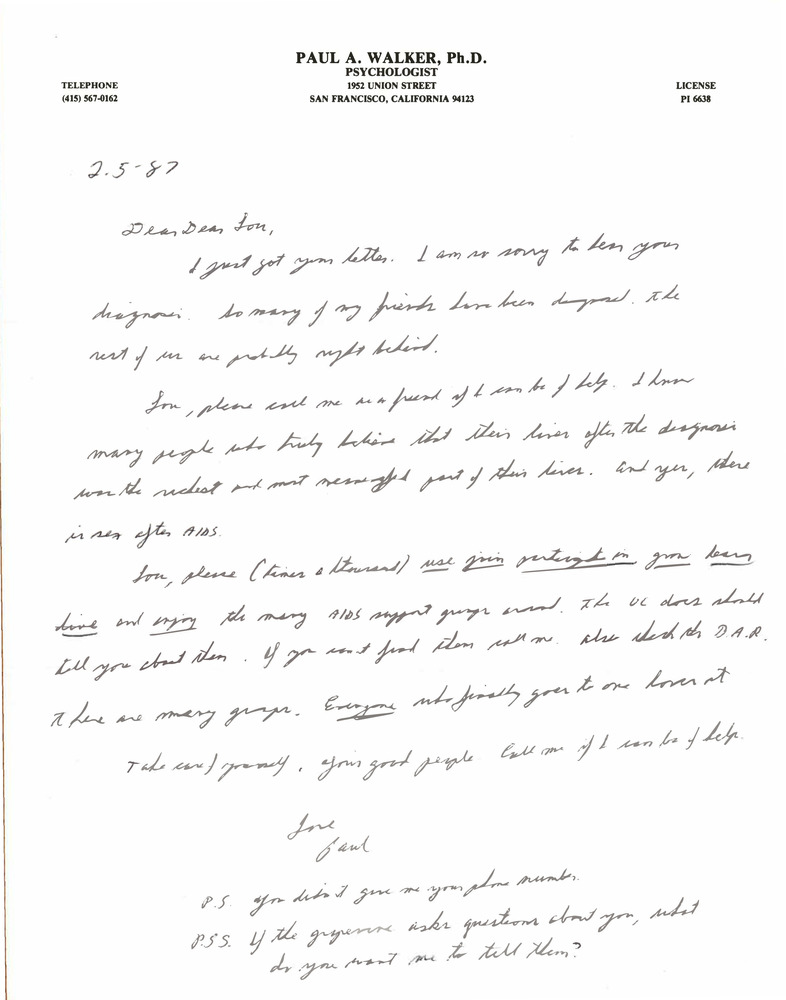 PAUL A. WALKER, Ph.D.
PSYCHOLOGIST
1952 UNION STREET
SAN FRANCISCO, CALIFORNIA 94123
TELEPHONE
(415) 567-0162
LICENSE
PI 6638
2.5-87
Dear Dear Lou,
I just got your letter. I am so sorry to hear your
diagnosis. So many of my friends have been diagnosed. The
rest of us are probably right behind.
Lou, please call me as a friend if I can be of help. I know
many people who truly believe that their lives after the diagnosis
was the richest and most meaningful part of their lives. And yes, there
is sex after AIDS.
Lou, please (times a thousand) use join participate in grow learn
live and enjoy the many AIDS support groups around. The UC docs should
tell you about them. If you can't find them call me. Also check the B.A.R.
There are many groups. Everyone who finally goes to one loves it
Take care of yourself. You're good people. Call me if I can be of help.
Love
Paul
P.S. You didn't give me your phone number.
PSS. If the grapevine asks questions about you, what
do you want me to tell them?